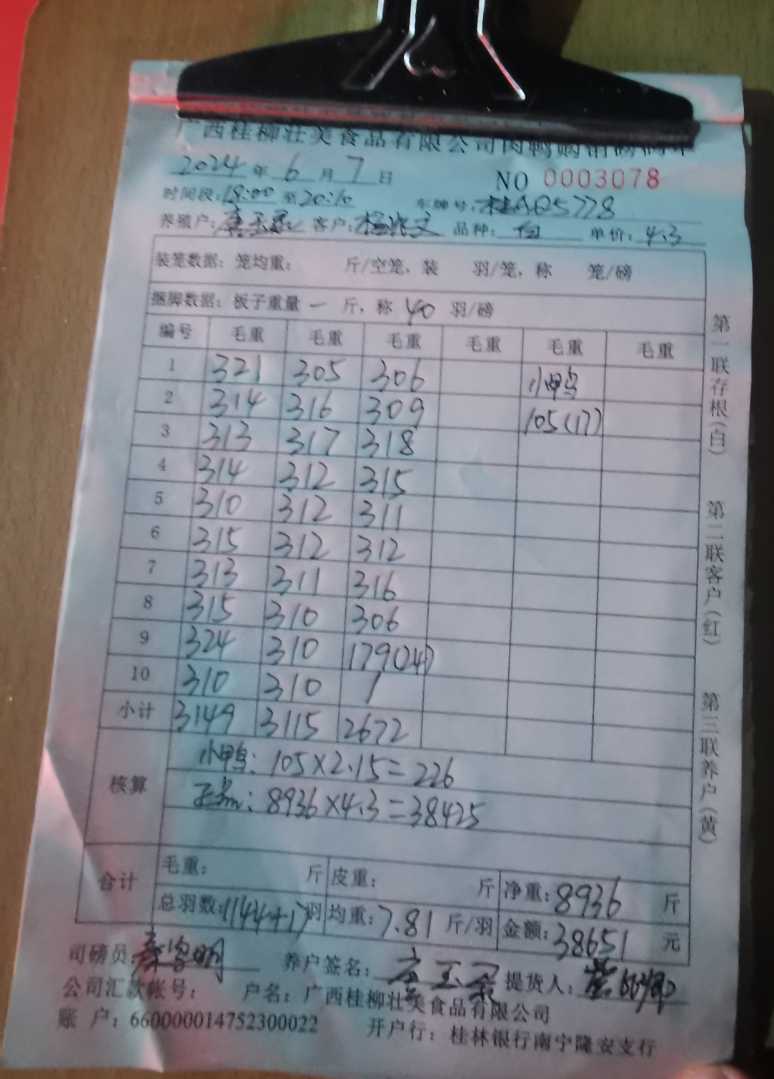 广西桂柳壮美食品有限公司肉鸭购销磅码单
2024 年 6 月 7 日 NO 0003078
时间段:18:00 至 20:10 车牌号:桂AQ5778
养殖户: 客户: 文 品种: 白 单价: 4.3
装笼数据: 笼均重: 斤/空笼, 装 羽/笼, 称 笼/磅
捆脚数据: 板子重量 一 斤, 称 40 羽/磅
编号 毛重 毛重 毛重 毛重 毛重 毛重
1 321 305 306 小鸭
2 314 316 309 105(17)
3 313 317 318
4 314 312 315
5 310 312 311
6 315 312 312
7 313 311 316
8 315 310 306
9 324 310 179(24)
10 310 310 /
小计 3149 3115 2672
核算 小鸭: 105×2.15=226
正品: 8936×4.3=38425
合计 毛重: 斤 皮重: 斤 净重: 8936 斤
总羽数: 1144+17 羽 均重: 7.81 斤/羽 金额: 38651 元
司磅员 明 养户签名: 玉 提货人:
公司汇款帐号: 户名: 广西桂柳壮美食品有限公司
账 户: 660000014752300022 开户行: 桂林银行南宁隆安支行
第一联存根(白)
第二联客户(红)
第三联养户(黄)